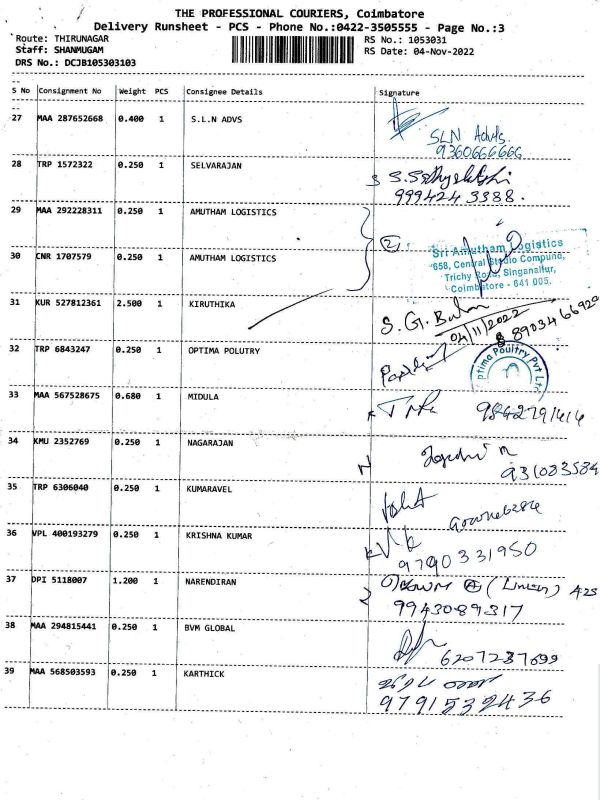 THE PROFESSIONAL COURIERS, Coimbatore
Delivery Runsheet - PCS - Phone No.:0422-3505555 - Page No.:3
Route: THIRUNAGAR RS No.: 1053031
Staff: SHANMUGAM RS Date: 04-Nov-2022
DRS No.: DCJB105303103
S No Consignment No Weight PCS Consignee Details Signature
27 MAA 287652668 0.400 1 S.L.N ADVS
SLN Advts.
9360666666
28 TRP 1572322 0.250 1 SELVARAJAN
9994243388.
29 MAA 292228311 0.250 1 AMUTHAM LOGISTICS
2
Sri Amutham Logistics
658, Central Studio Compund,
Trichy Road, Singanallur,
Coimbatore - 641 005.
30 CNR 1707579 0.250 1 AMUTHAM LOGISTICS
31 KUR 527812361 2.500 1 KIRUTHIKA
S. G.
04/11/2022
8903466920
32 TRP 6843247 0.250 1 OPTIMA POLUTRY
Optima Poultry Pvt Ltd
33 MAA 567528675 0.680 1 MIDULA
9842791414
34 KMU 2352769 0.250 1 NAGARAJAN
931083584
35 TRP 6306040 0.250 1 KUMARAVEL
36 VPL 400193279 0.250 1 KRISHNA KUMAR
9790331950
37 DPI 5118007 1.200 1 NARENDIRAN
9943089317
38 MAA 294815441 0.250 1 BVM GLOBAL
6207237699
39 MAA 568503593 0.250 1 KARTHICK
9791532436